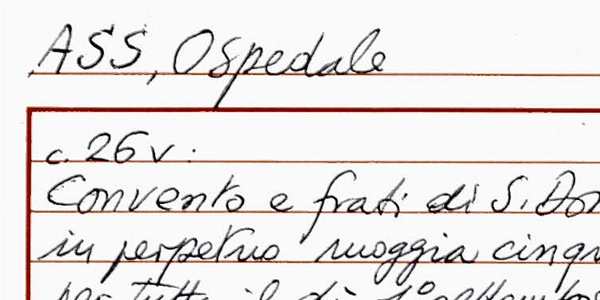 ASS, Ospedale
c. 26 v:
Convento e frati di S.
in perpetuo moggia
per tutto il dì 1°